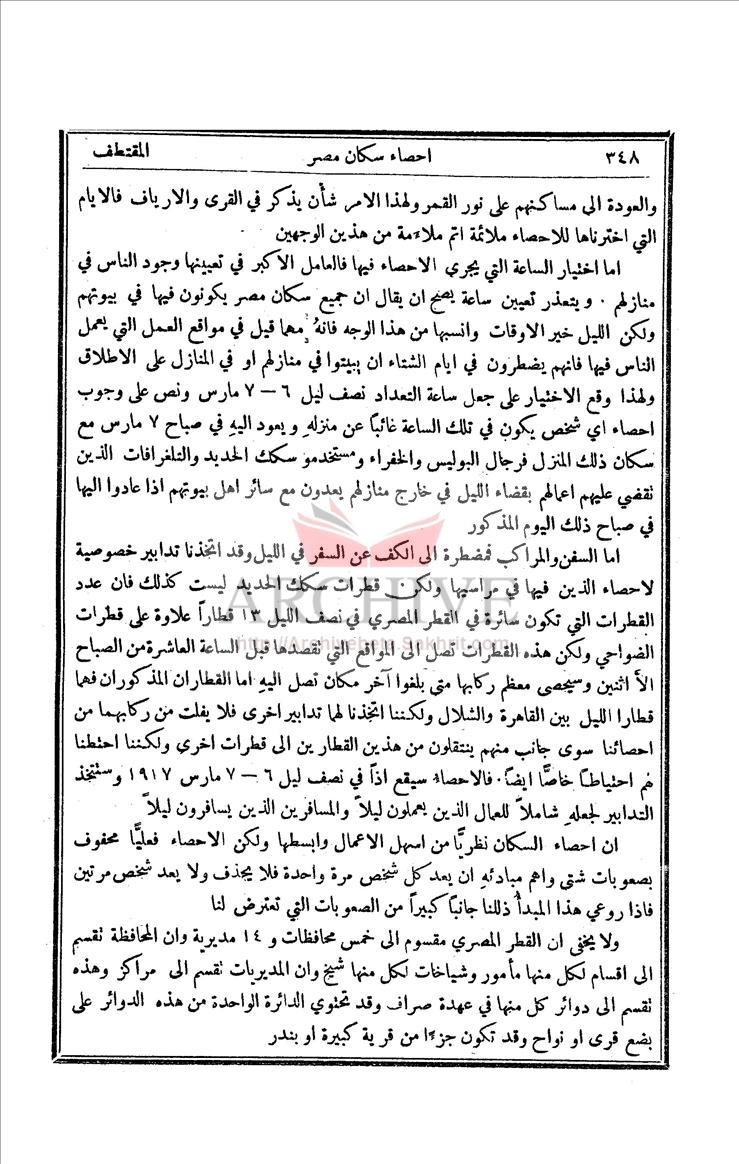 ٣٤٨ احصاء سكان مصر المقتطف
والعودة الى مساكنهم على نور القمر ولهذا الامر شأن يذكر في القرى والارياف فالايام
التي اخترناها للاحصاء ملائمة اتم ملاءمة من هذين الوجهين
اما اختيار الساعة التي يجري الاحصاء فيها فالعامل الاكبر في تعيينها وجود الناس في
منازلهم . ويتعذر تعيين ساعة يصح ان يقال ان جميع سكان مصر يكونون فيها في بيوتهم
ولكن الليل خير الاوقات وانسبها من هذا الوجه فانهُ مهما قيل في مواقع العمل التي يعمل
الناس فيها فانهم يضطرون في ايام الشتاء ان يبيتوا في منازلهم او في المنازل على الاطلاق
ولهذا وقع الاختيار على جعل ساعة التعداد نصف ليل ٦ – ٧ مارس ونص على وجوب
احصاء اي شخص يكون في تلك الساعة غائباً عن منزلهِ ويعود اليهِ في صباح ٧ مارس مع
سكان ذلك المنزل فرجال البوليس والخفراء ومستخدمو سكك الحديد والتلغرافات الذين
تقضي عليهم اعمالهم بقضاء الليل في خارج منازلهم يعدون مع سائر اهل بيوتهم اذا عادوا اليها
في صباح ذلك اليوم المذكور
اما السفن والمراكب فمضطرة الى الكف عن السفر في الليل وقد اتخذنا تدابير خصوصية
لاحصاء الذين فيها في مراسيها ولكن قطرات سكك الحديد ليست كذلك فان عدد
القطرات التي تكون سائرة في القطر المصري في نصف الليل ١٣ قطاراً علاوة على قطرات
الضواحي ولكن هذه القطرات تصل الى المواقع التي تقصدها قبل الساعة العاشرة من الصباح
الأ اثنين وسيحصى معظم ركابها متى بلغوا آخر مكان تصل اليهِ اما القطاران المذكوران فهما
قطارا الليل بين القاهرة والشلال ولكننا اتخذنا لهما تدابير اخرى فلا يفلت من ركابهما من
احصائنا سوى جانب منهم ينتقلون من هذين القطارين الى قطرات اخرى ولكننا احتطنا
لهم احتياطاً خاصًّا ايضاً. فالاحصاء سيقع اذاً في نصف ليل ٦ – ٧ مارس ١٩١٧ وستتخذ
التدابير لجعلهِ شاملاً للعمال الذين يعملون ليلاً والمسافرين الذين يسافرون ليلاً
ان احصاء السكان نظريًّا من اسهل الاعمال وابسطها ولكن الاحصاء فعليًّا محفوف
بصعوبات شتى واهم مبادئهِ ان يعد كل شخص مرة واحدة فلا يحذف ولا يعد شخص مرتين
فاذا روعي هذا المبدأُ ذللنا جانباً كبيراً من الصعوبات التي تعترض لنا
ولا يخفى ان القطر المصري مقسوم الى خمس محافظات و ١٤ مديرية وان المحافظة تقسم
الى اقسام لكل منها مأمور وشياخات لكل منها شيخ وان المديريات تقسم الى مراكز وهذه
تقسم الى دوائر كل منها في عهدة صراف وقد تحتوي الدائرة الواحدة من هذه الدوائر على
بضع قرى او نواح وقد تكون جزءًا من قرية كبيرة او بندر
ARCHIVE
http://Archivebeta.Sakhrit.com